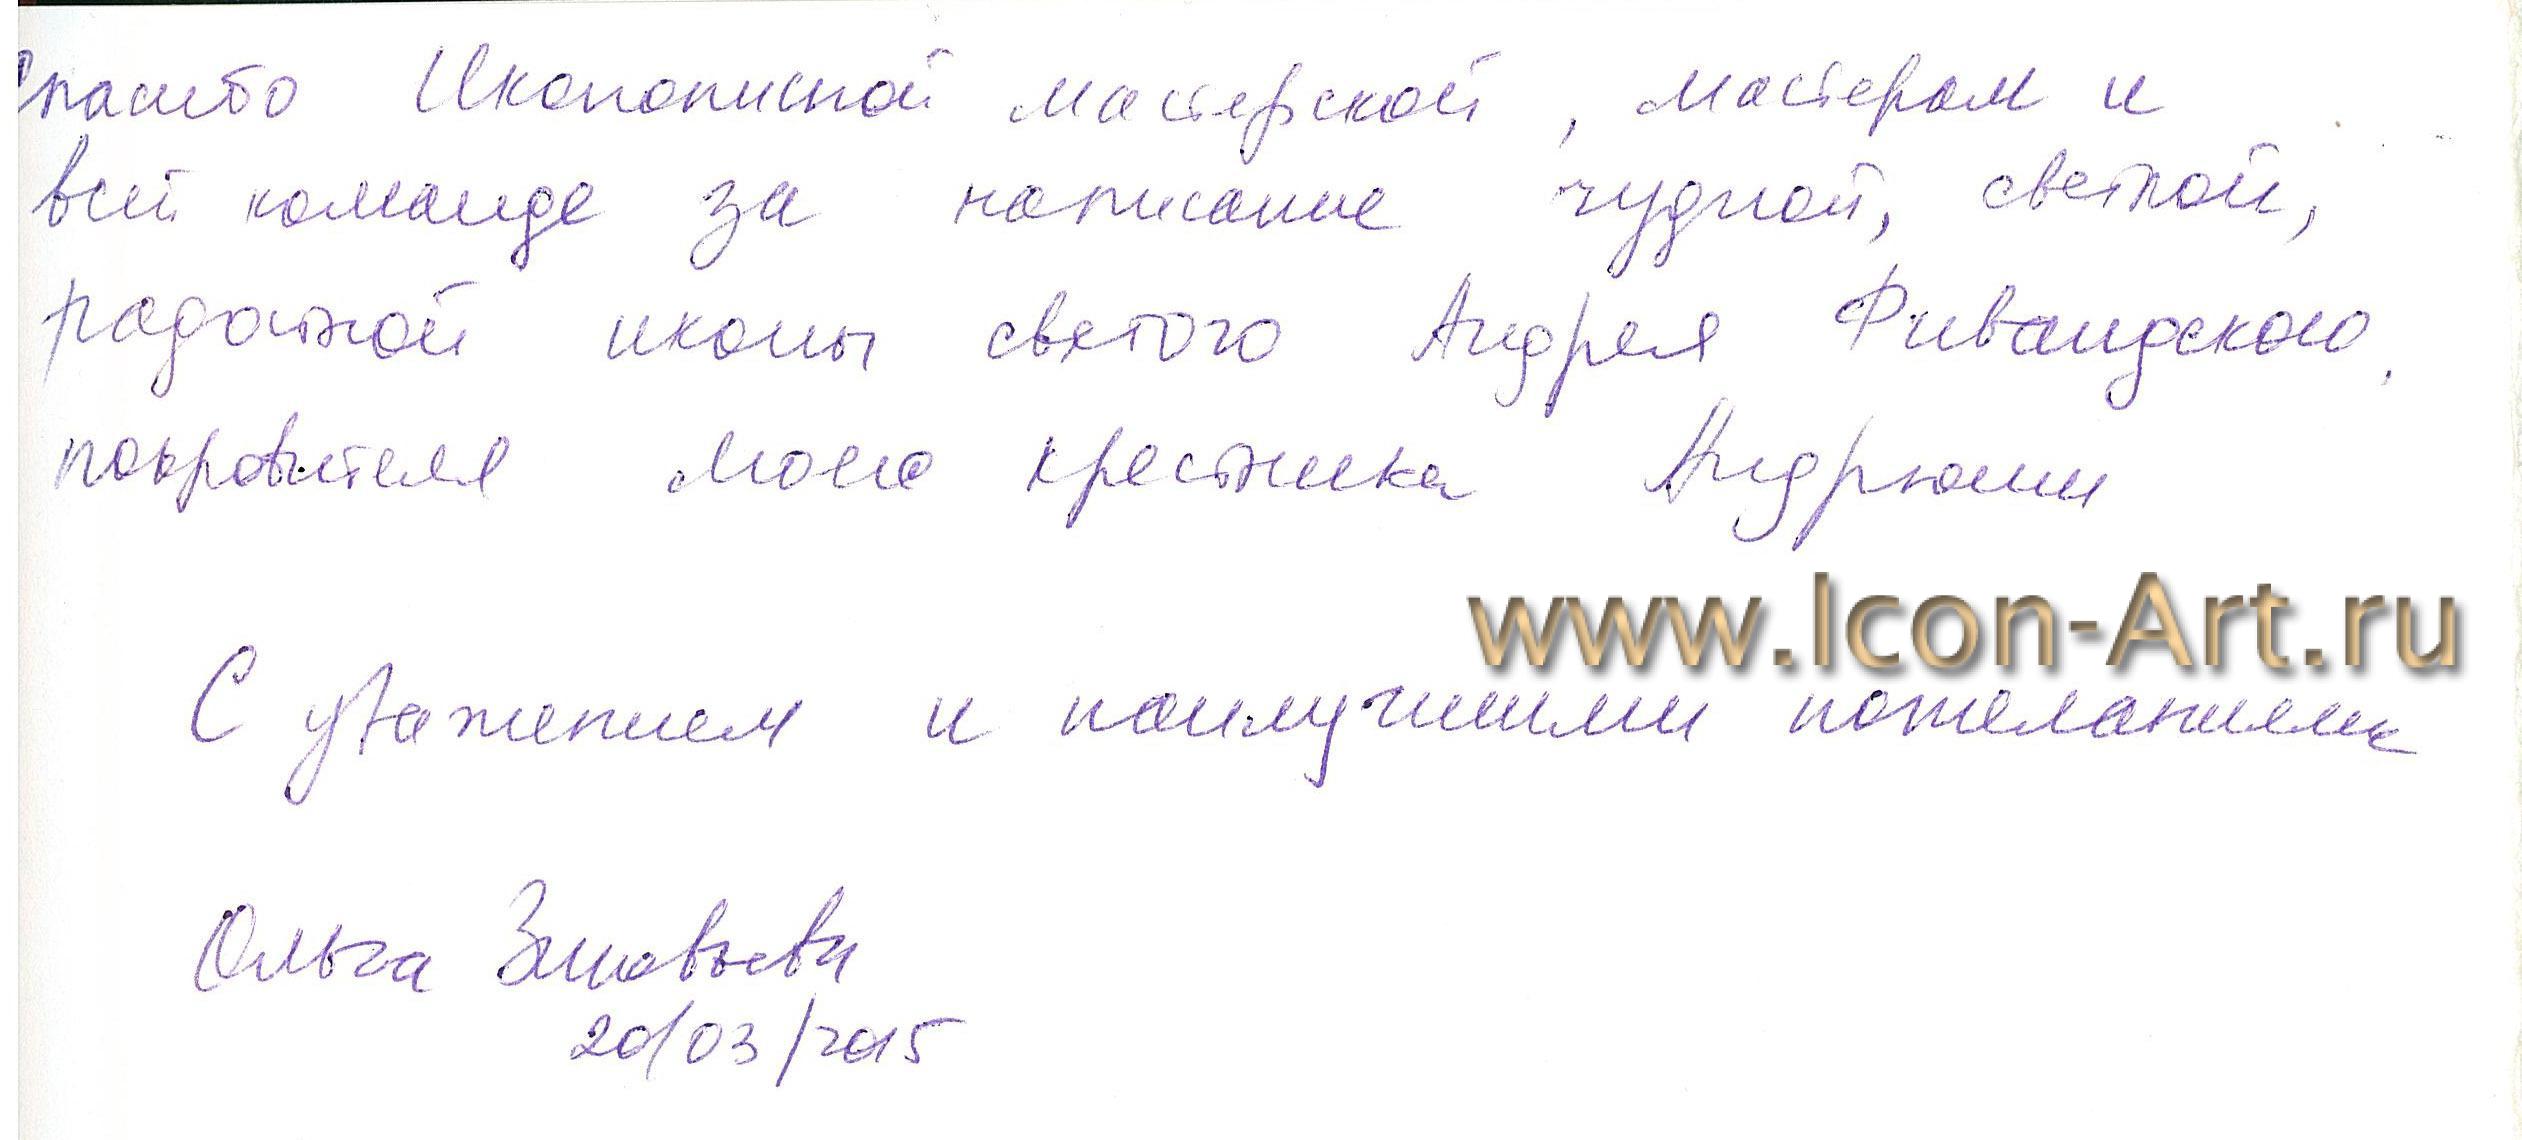 Спасибо Иконописной мастерской, мастерам и
всей команде за написание чудной, светлой,
радостной иконы святого Андрея Фиваидского,
покровителя моего крестника Андрюши
www.Icon-Art.ru
С уважением и наилучшими пожеланиями
Ольга Зиновьева
20/03/2015